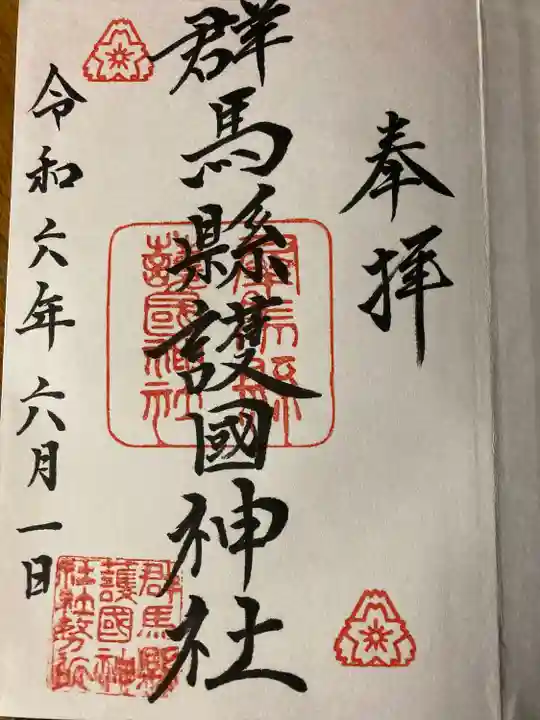 奉拝
群馬縣護國神社
令和六年六月一日
群馬縣
護國神社
群馬縣
護國神
社社務所